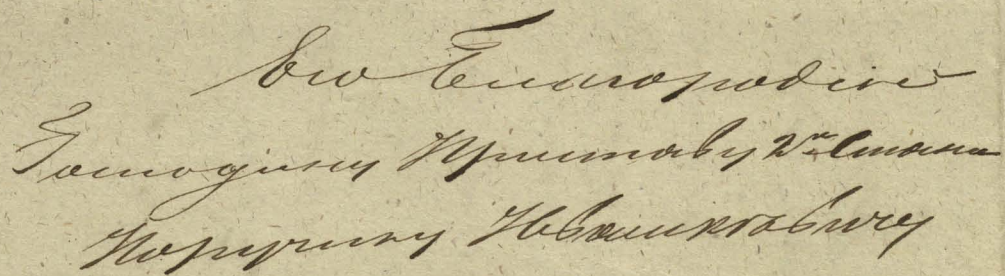 Его Благородію
Господину Приставу 2го Стана
Поручику